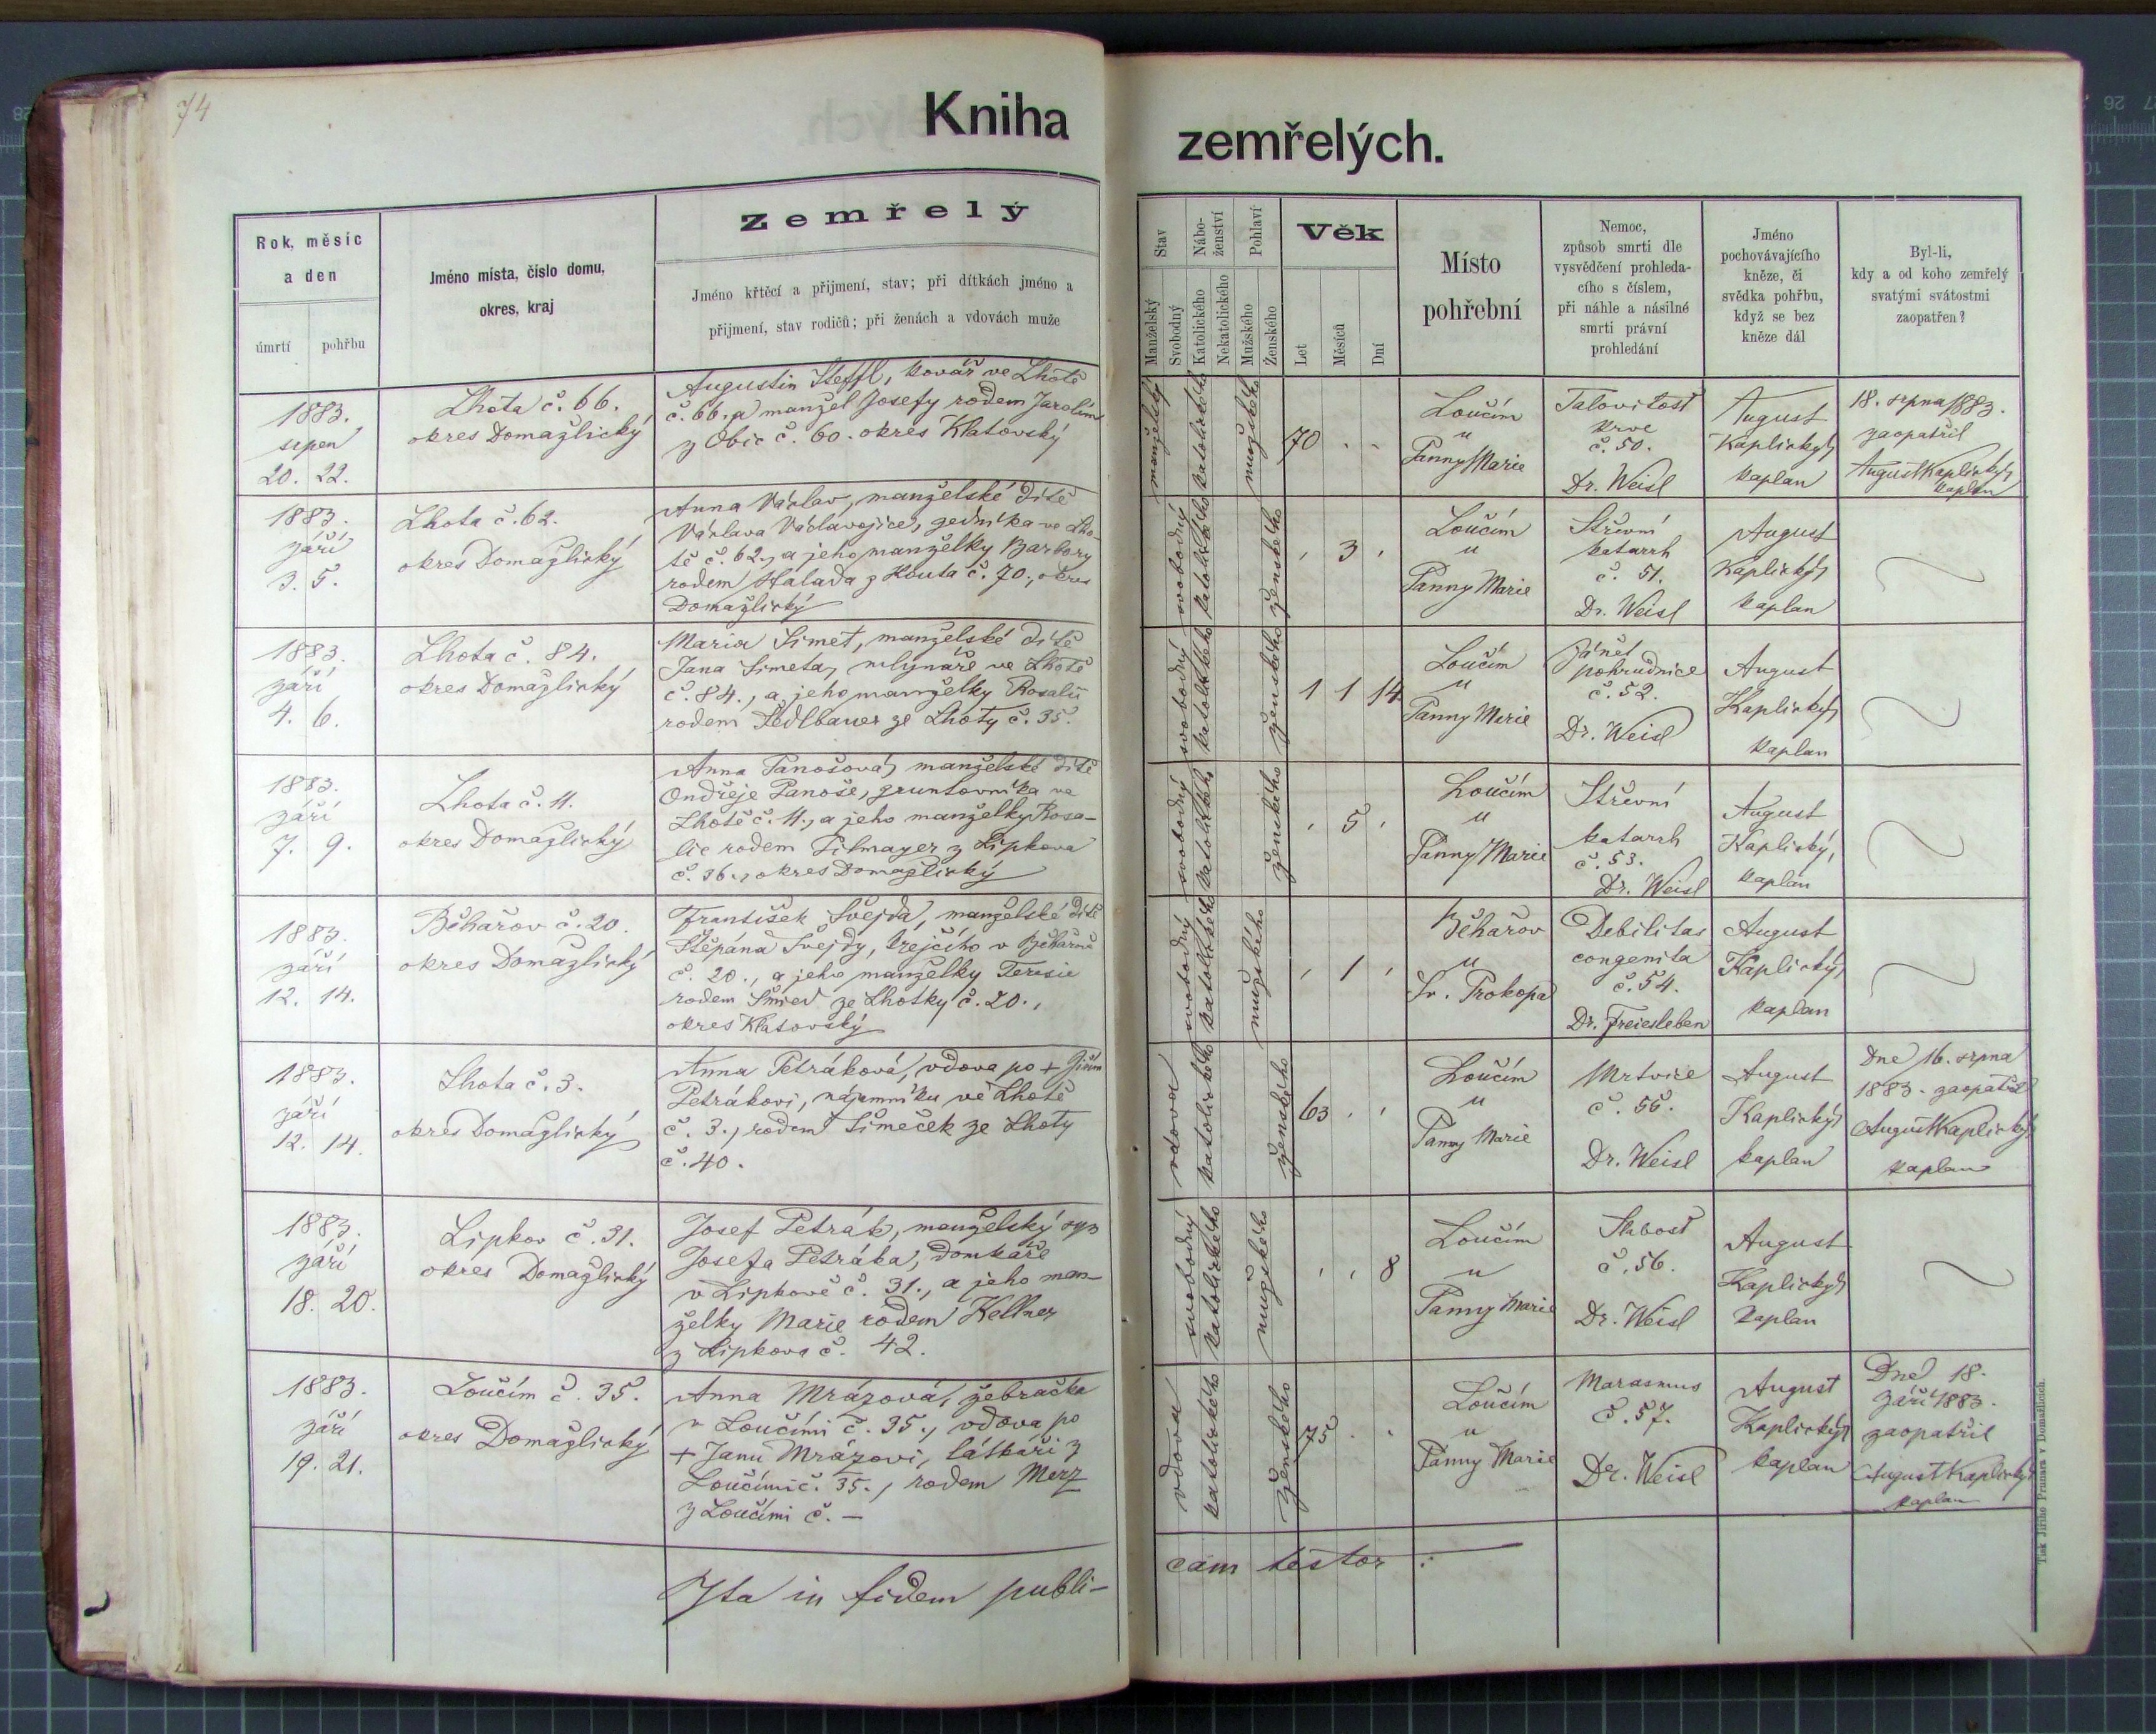 74
Kniha zemřelých.
Rok, měsíc
a den
úmrtí pohřbu
Jméno místa, číslo domu,
okres, kraj
Zemřelý
Jméno křtěcí a přijmení, stav; při dítkách jméno a
přijmení, stav rodičů; při ženách a vdovách muže
Stav
Manželský
Svobodný
Nábo-
ženství
Katolického
Nekatolického
Pohlaví
Mužského
Ženského
Věk
Let
Měsíců
Dní
Místo
pohřební
Nemoc,
způsob smrti dle
vysvědčení prohleda-
cího s číslem,
při náhle a násilné
smrti právní
prohledání
Jméno
pochovávajícího
kněze, či
svědka pohřbu,
když se bez
kněze dál
Byl-li,
kdy a od koho zemřelý
svatými svátostmi
zaopatřen?
1883.
srpen
20. 22.
Lhota č. 66.
okres Domažlický
Augustin Steffl, kovář ve Lhotě
č. 66. a manžel Josefy rodem Jarolím
z Obic č. 60. okres Klatovský
manželský
katolického
mužského
70 . .
Loučím
u
Panny Marie
Talovitost
krve
č. 50.
Dr. Weisl
August
Kaplický,
kaplan
18. srpna 1883.
zaopatřil
August Kaplický,
kaplan
1883.
září
3. 5.
Lhota č. 62.
okres Domažlický
Anna Václav, manželské dítě
Václava Václavojice, sedníka ve Lho-
tě č. 62., a jeho manželky Barbory
rodem Halada z Kouta č. 70., okres
Domažlický
svobodný
katolického
ženského
. 3 .
Loučím
u
Panny Marie
Střevní
katarrh
č. 51.
Dr. Weisl
August
Kaplický,
kaplan
1883.
září
4. 6.
Lhota č. 84.
okres Domažlický
Maria Simet, manželské dítě
Jana Simeta, mlynáře ve Lhotě
č. 84., a jeho manželky Rosalii
rodem Sedlbauer ze Lhoty č. 35.
svobodný
katolického
ženského
1 1 14
Loučím
u
Panny Marie
Zánět
pohrudnice
č. 52.
Dr. Weisl
August
Kaplický,
kaplan
1883.
září
7. 9.
Lhota č. 11.
okres Domažlický
Anna Panošová, manželské dítě
Ondřeje Panoše, gruntovníka ve
Lhotě č. 11., a jeho manželky Rosa-
lie rodem Pilmayer z Lipkova
č. 36., okres Domažlický
svobodný
katolického
ženského
. 5 .
Loučím
u
Panny Marie
Střevní
katarrh
č. 53.
Dr. Weisl
August
Kaplický,
kaplan
1883.
září
12. 14.
Běhařov č. 20.
okres Domažlický
František Švejda, manželské dítě
Štěpána Švejdy, krejčího v Běhařově
č. 20., a jeho manželky Teresie
rodem ze Lhotky č. 20.,
okres Klatovský
svobodný
katolického
mužského
. 1 .
Běhařov
u
Sv. Prokopa
Debilitas
congenita
č. 54.
Dr. Freiesleben
August
Kaplický,
kaplan
1883.
září
12. 14.
Lhota č. 3.
okres Domažlický
Anna Petráková, vdova po +
Petrákovi, nájemníku ve Lhotě
č. 3., rodem Šimeček ze Lhoty
č. 40.
vdova
katolického
ženského
63 . .
Loučím
u
Panny Marie
Mrtvice
č. 55.
Dr. Weisl
August
Kaplický,
kaplan
Dne 16. srpna
1883. zaopatřil
August Kaplický,
kaplan
1883.
září
18. 20.
Lipkov č. 31.
okres Domažlický
Josef Petrák, manželský syn
Josefa Petráka, domkáře
v Lipkově č. 31., a jeho man-
želky Marie rodem Kellner
z Lipkova č. 42.
svobodný
katolického
mužského
. . 8
Loučím
u
Panny Marie
Slabost
č. 56.
Dr. Weisl
August
Kaplický,
kaplan
1883.
září
19. 21.
Loučím č. 35.
okres Domažlický
Anna Mrázová, žebračka
v Loučími č. 35., vdova po
+ Janu Mrázovi, látkáři z
Loučími č. 35., rodem Merz
z Loučími č. —
vdova
katolického
ženského
75 . .
Loučím
u
Panny Marie
Marasmus
č. 57.
Dr. Weisl
August
Kaplický,
kaplan
Dne 18.
září 1883.
zaopatřil
August Kaplický,
kaplan
Ita in fidem publi-
cam testor :
Tisk Jiřího Prunara v Domažlicích.